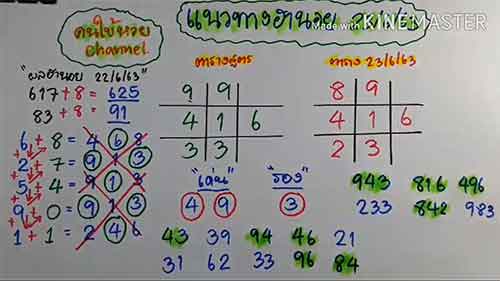 คนใบ้หวย
channel
แนวทางฮานอย
Made with KINEMASTER
"ผลฮานอย 22/6/63"
617+8 = 625
83+8 = 91
6+8 = 4 6 8
2+7 = 9 1 3
5+4 = 9 1 3
9+0 = 9 1 3
1+1 = 2 4 6
ตารางสูตร
9 9
4 1 6
3 3
ตาราง 23/6/63
8 9
4 1 6
2 3
"เด่น" "รอง"
4 9 3
943 816 496
233 842 983
43 39 94 46 21
31 62 33 96 84